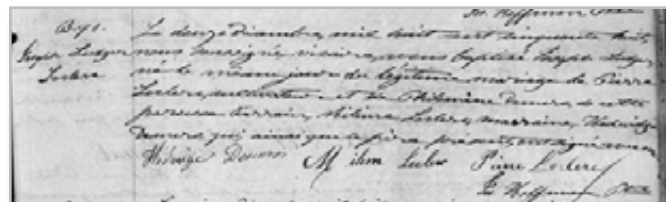 B 90.
Joseph Ludger
Leclerc
Ls. Hoffman Ptre
Le douze décembre, mil huit cent cinquante huit,
nous soussigné, vicaire, avons baptisé Joseph Ludger
né le même jour du légitime mariage de Pierre
Leclerc, cultivateur et de Philomène Demers, de cette
paroisse. Parrain, Leclerc, marraine, Hedwidge
Demers qui, ainsi que le père présent, ont signé avec nous.
Hedwige Demers M Leclerc Pierre Leclerc
Ls Hoffman Ptre